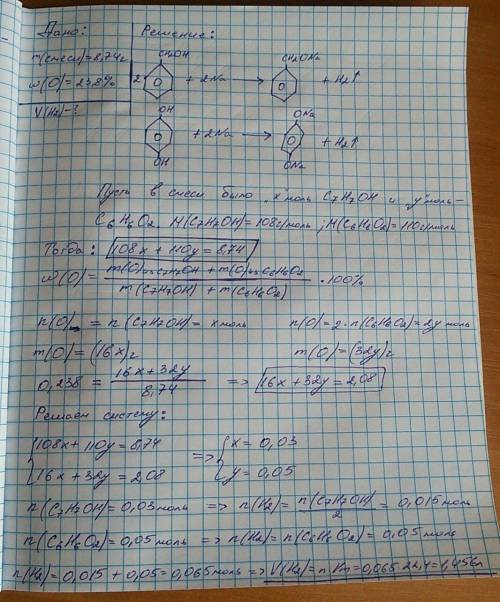 Дано:
m(смеси)=8,74г
w(O)=23,8%
V(H₂)-?
Решение:
CH₂OH
CH₂ONa
2 + 2Na → + H₂↑
OH
ONa
+ 2Na → + H₂↑
OH
ONa
Пусть в смеси было "x" моль C₇H₇OH и "y" моль-
C₆H₆O₂. M(C₇H₇OH)=108г/моль; M(C₆H₆O₂)=110г/моль
Тогда: 108x + 110y = 8,74
w(O)= m(O)из C₇H₇OH + m(O)из C₆H₆O₂ · 100%
m(C₇H₇OH) + m(C₆H₆O₂)
n(O) = n(C₇H₇OH)= x моль n(O)=2·n(C₆H₆O₂)=2y моль
m(O)=(16x)г m(O)=(32y)г
0,238 = 16x+32y => 16x + 32y = 2,08
8,74
Решаем систему:
108x+110y=8,74 => x = 0,03
16x + 32y = 2,08 y = 0,05
n(C₇H₇OH)=0,03моль => n(H₂)= n(C₇H₇OH) = 0,015моль
2
n(C₆H₆O₂)=0,05моль => n(H₂)= n(C₆H₆O₂)= 0,05моль
n(H₂)= 0,015 + 0,05=0,065моль => V(H₂)=n·Vm=0,065·22,4=1,456л